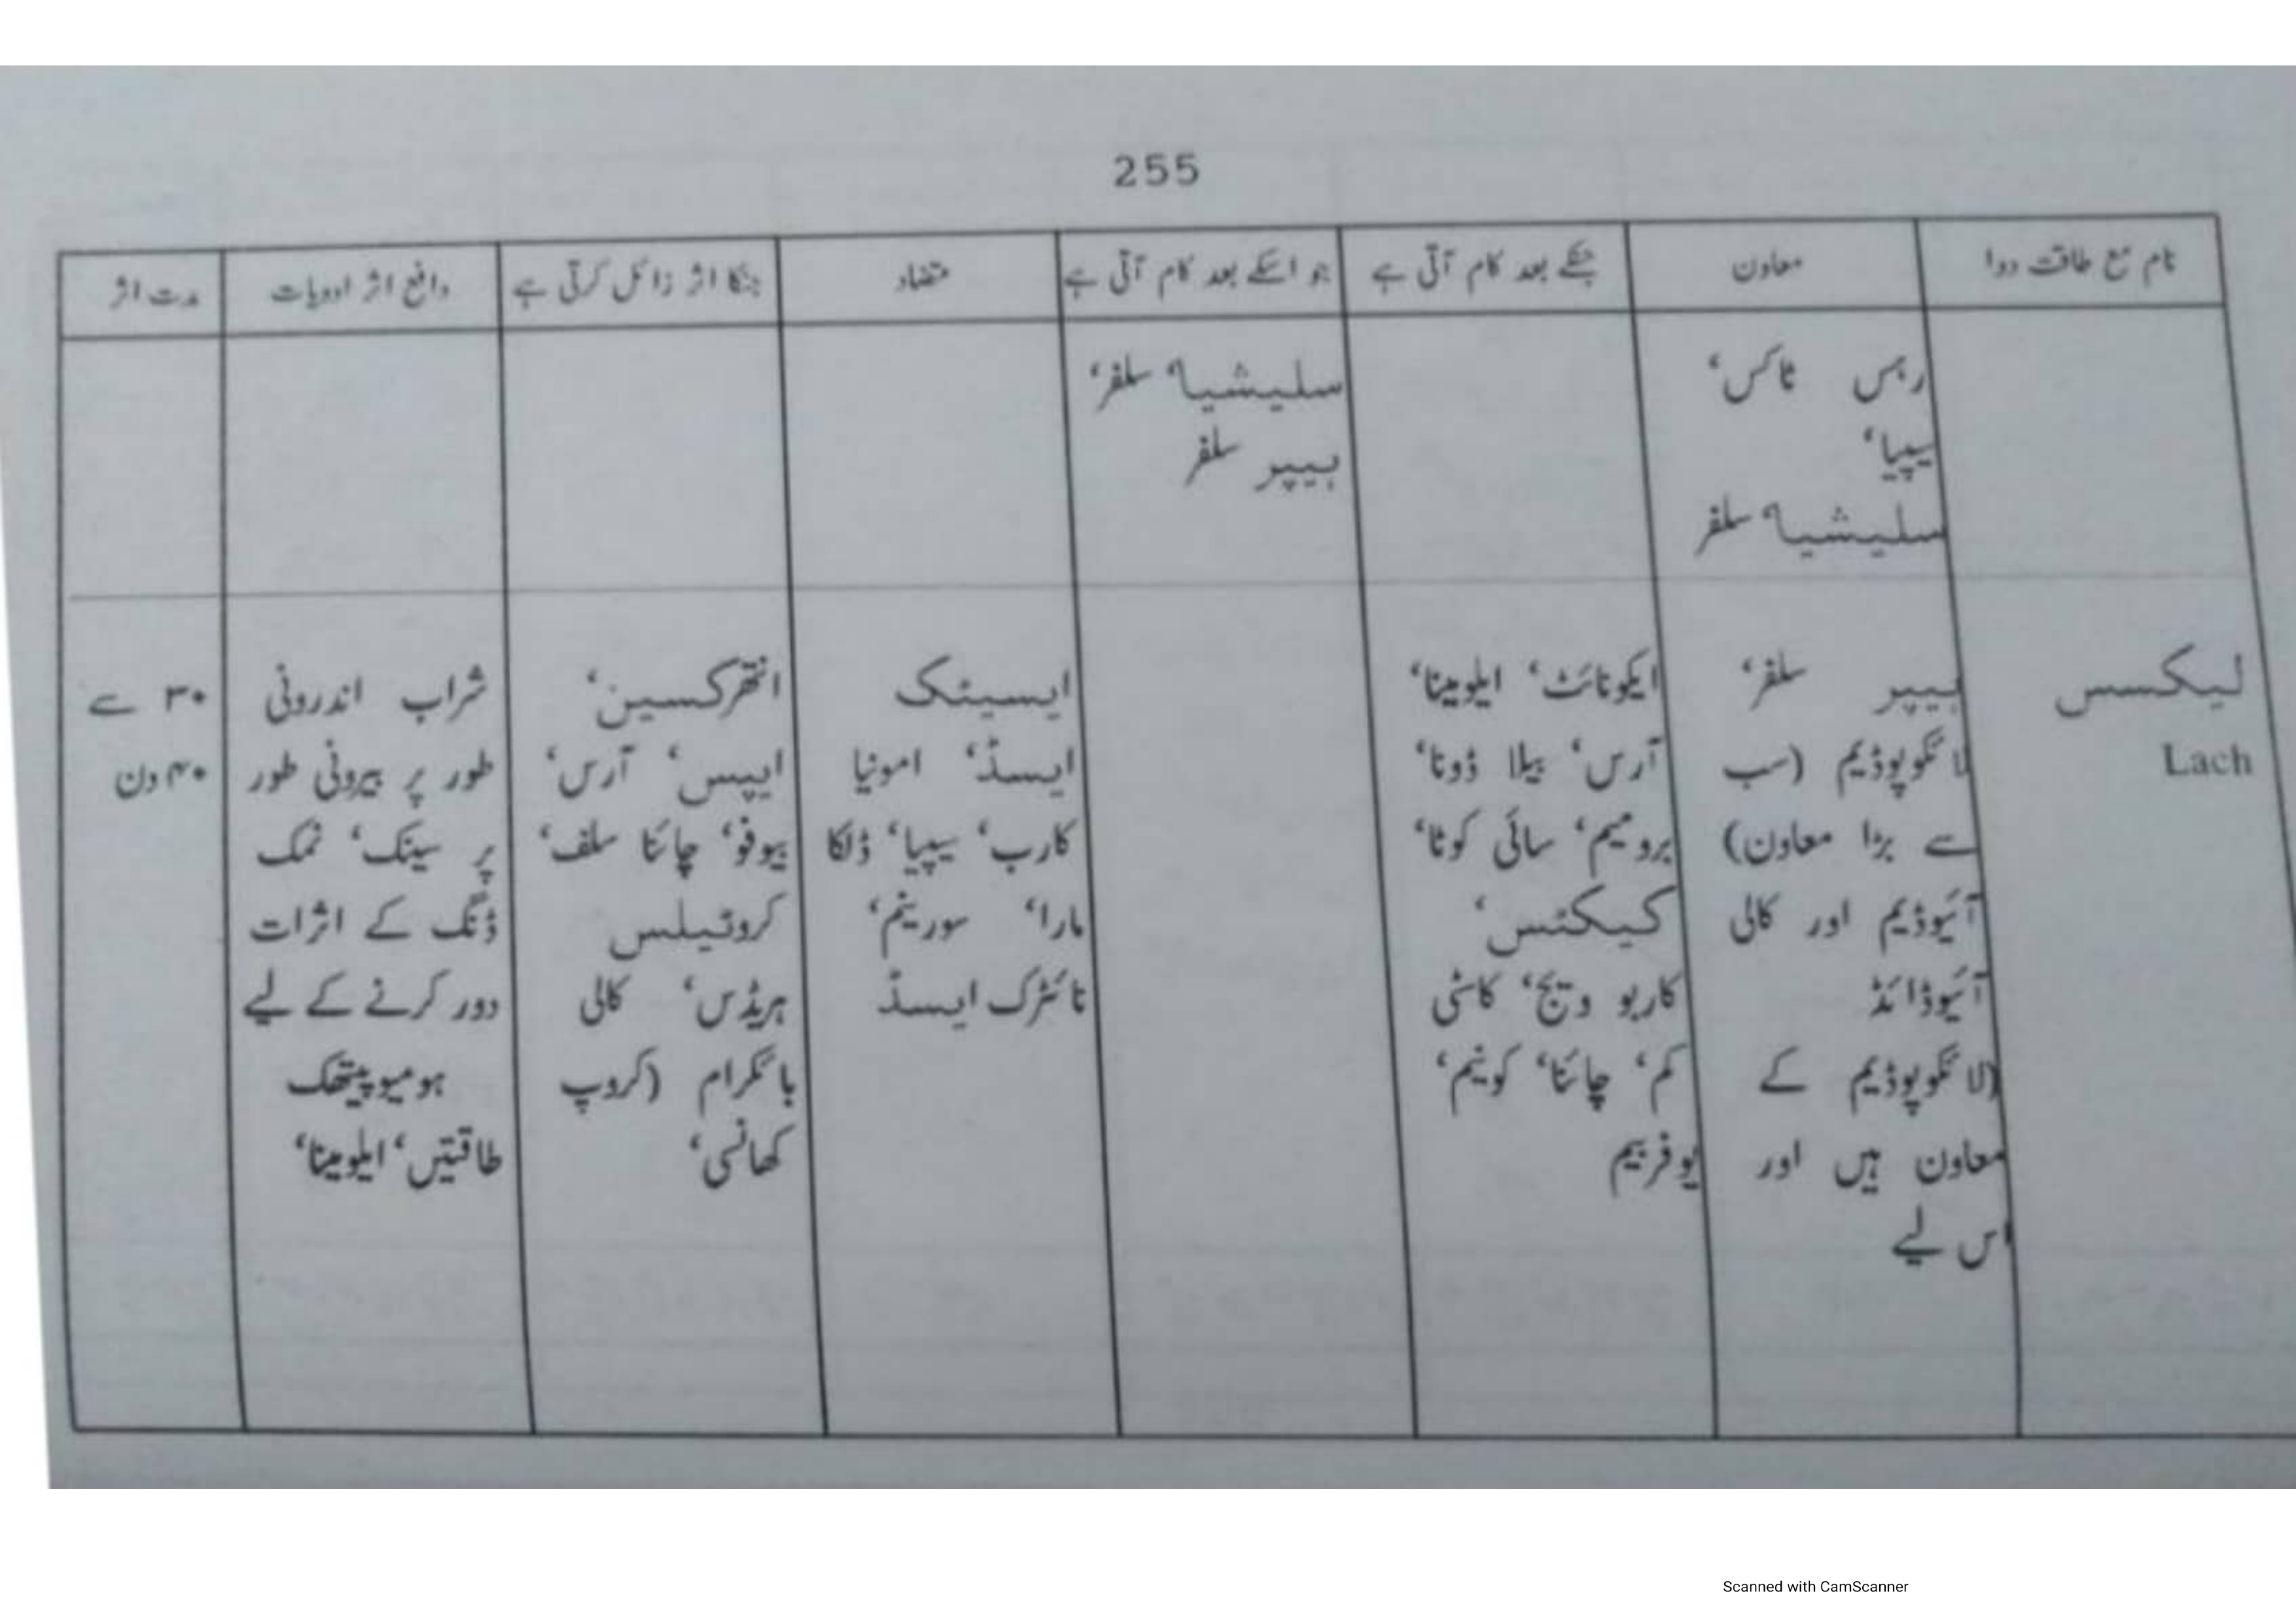 255
نام مع طاقت دوا
معاون
جسکے بعد کام آتی ہے
جو اسکے بعد کام آتی ہے
متضاد
جنکا اثر زائل کرتی ہے
دافع اثر ادویات
مدت اثر
رہس ٹاکس،
سیپیا،
سلیشیا، سلفر
سلیشیا، سلفر،
ہیپر سلفر
لیکسس
Lach
ہیپر سلفر،
لائکوپوڈیم (سب
سے بڑا معاون)
آئیوڈیم اور کالی
آئیوڈائڈ
(لائکوپوڈیم کے
معاون ہیں اور
اس لیے
ایکونائٹ، ایلومینا،
آرس، بیلا ڈونا،
برومیم، سائی کوٹا،
کیکٹس،
کاربو ویج، کاسٹی
کم، چائنا، کونیم،
یوفربیم
ایسیٹک
ایسڈ، امونیا
کارب، سیپیا، ڈلکا
مارا، سورینم،
نائٹرک ایسڈ
انتھرکسین،
ایپس، آرس،
بیوفو، چائنا سلف،
کروٹیلس
ہریڈس، کالی
بائکرام (کروپ
کھانسی،
شراب اندرونی
طور پر بیرونی طور
پر سینک، نمک
ڈنگ کے اثرات
دور کرنے کے لیے
ہومیوپیتھک
طاقتیں، ایلومینا،
۳۰ سے
۴۰ دن
Scanned with CamScanner